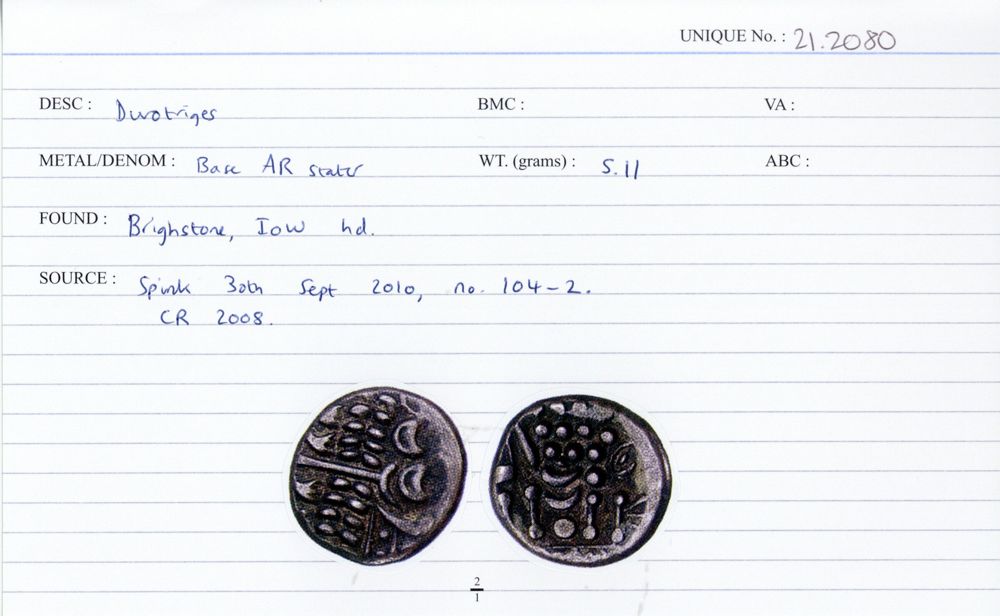 UNIQUE No. : 21.2080
DESC : Durotriges BMC : VA :
METAL/DENOM : Base AR stater WT. (grams) : 5.11 ABC :
FOUND : Brighstone, IOW hd.
SOURCE : Spink 30th Sept 2010, no. 104-2.
CR 2008.
2
1